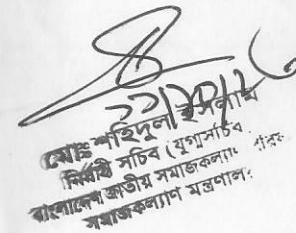 মোঃ শহিদুল ইসলাম
নির্বাহী সচিব (যুগ্মসচিব
বাংলাদেশ জাতীয় সমাজকল্যাণ
সমাজকল্যাণ মন্ত্রণাল